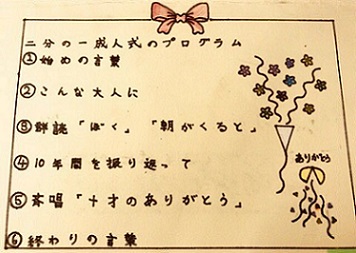 二分の一成人式のプログラム
①始めの言葉
②こんな大人に
③群読「ぼく」「朝がくると」
④10年間を振り返って
⑤斉唱「十才のありがとう」
⑥終わりの言葉
ありがとう